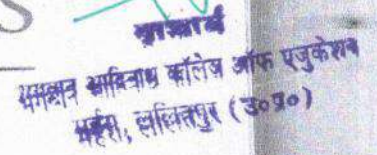 S
प्राचार्य
भगवान आदिनाथ कॉलेज ऑफ एजुकेशन
महर्रा, ललितपुर (उ०प्र०)